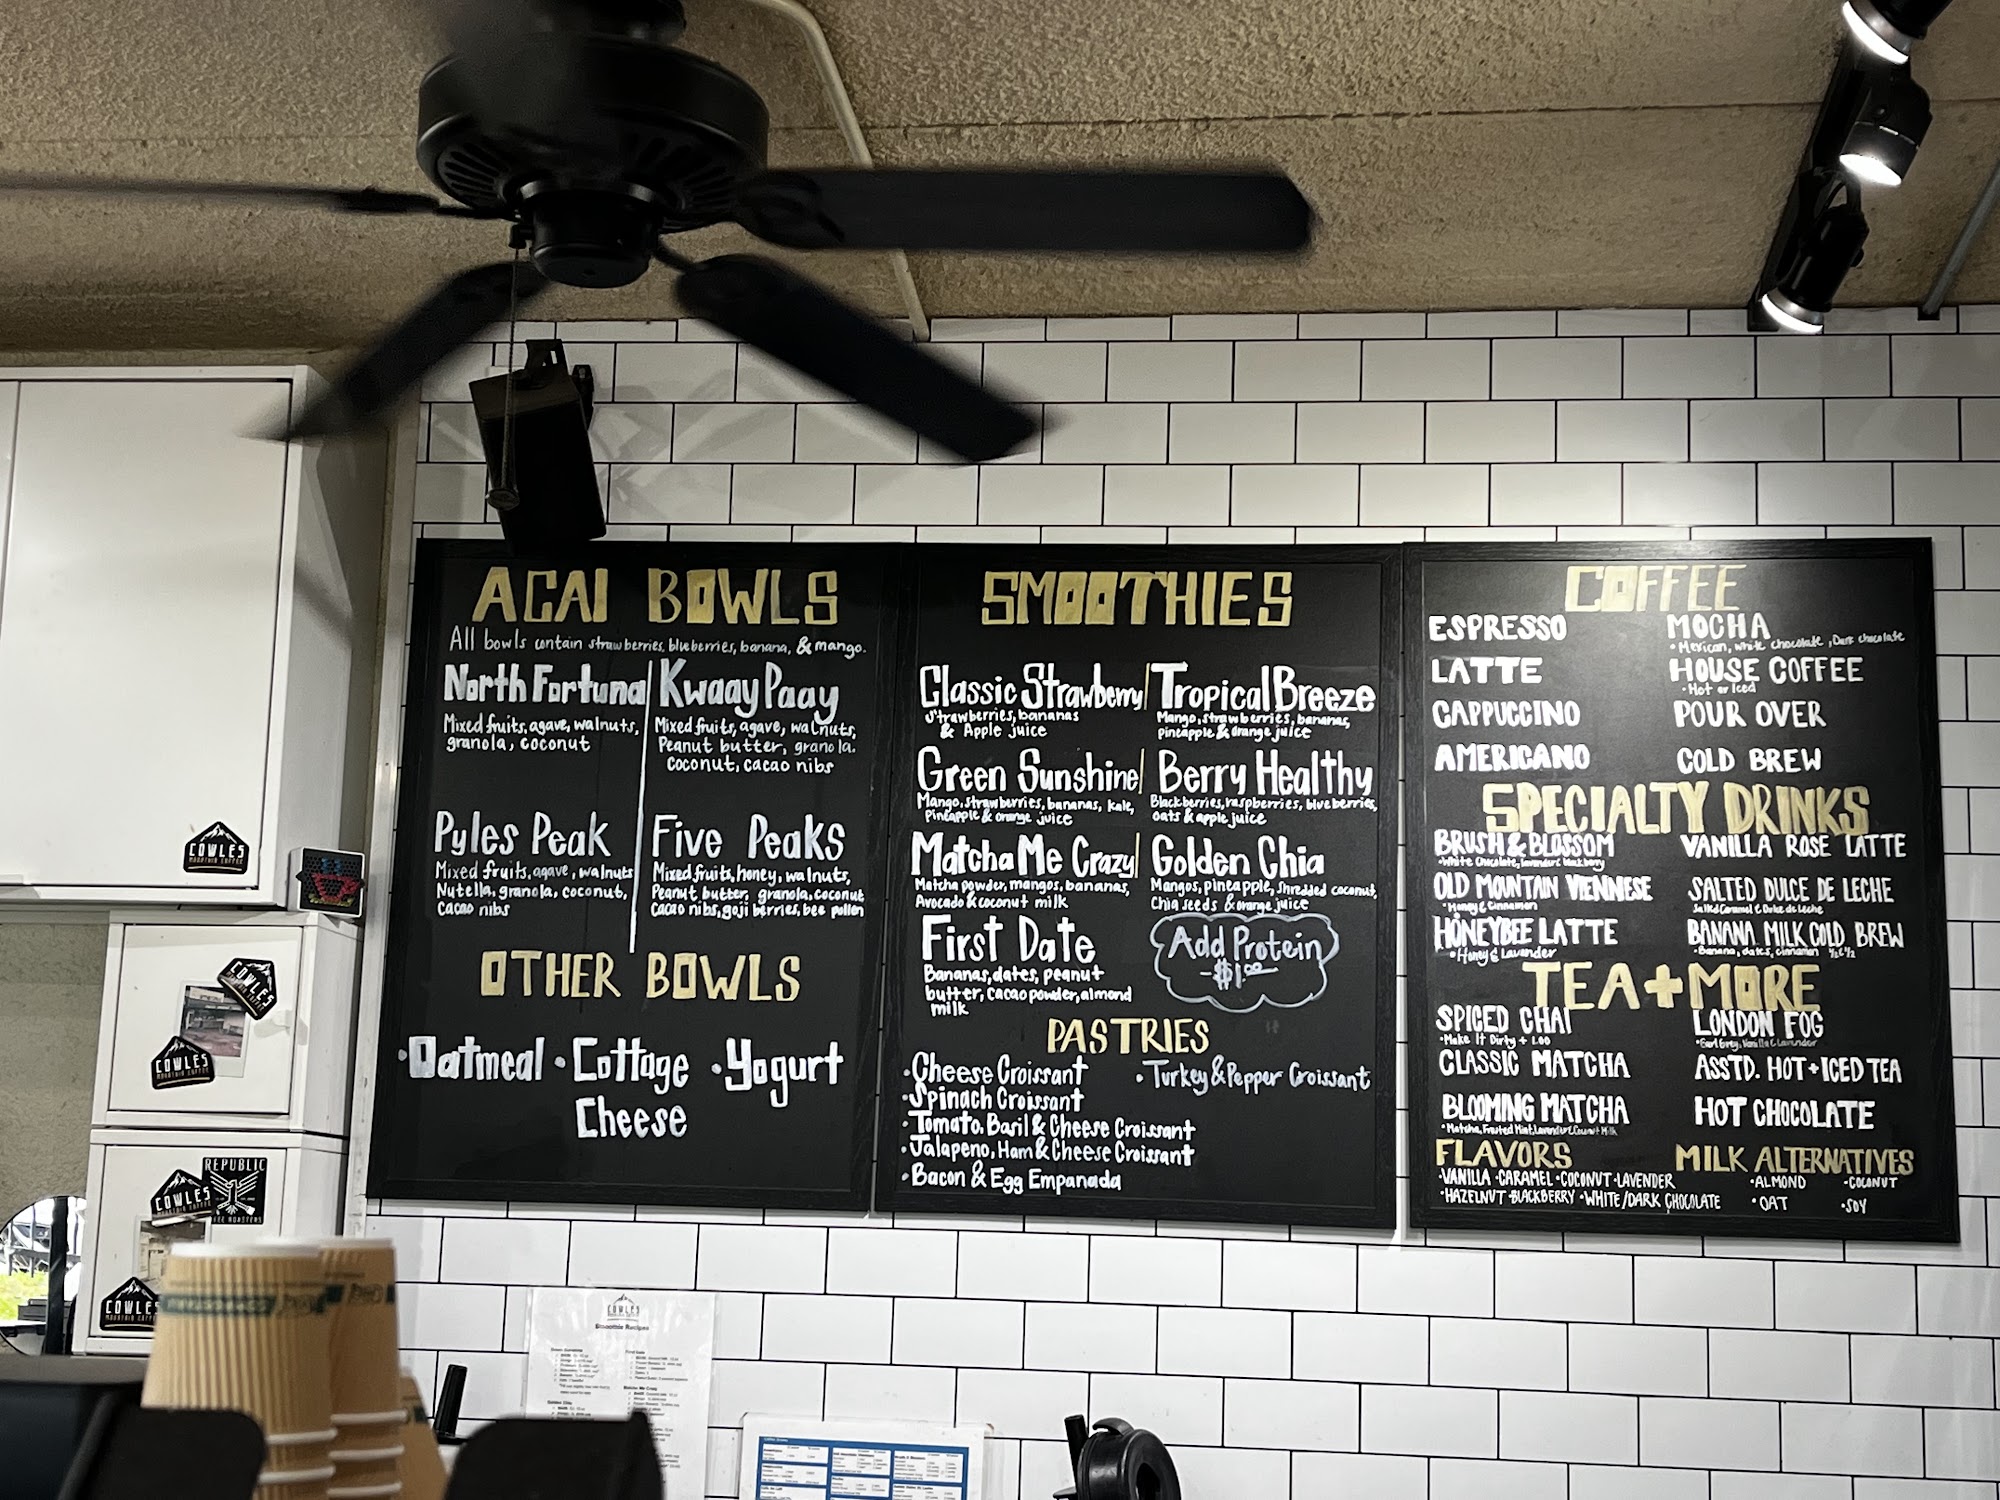 ACAI BOWLS
All bowls contain strawberries, blueberries, banana, & mango.
North Fortuna
Mixed fruits, agave, walnuts,
granola, coconut
Kwaay Paay
Mixed fruits, agave, walnuts,
Peanut butter, granola.
coconut, cacao nibs
Pyles Peak
Mixed fruits, agave, walnuts
Nutella, granola, coconut,
cacao nibs
Five Peaks
Mixed fruits, honey, walnuts,
Peanut butter, granola, coconut
Cacao nibs, goji berries, bee pollen
OTHER BOWLS
•Oatmeal •Cottage •Yogurt
Cheese
SMOOTHIES
Classic Strawberry
Strawberries, bananas
& Apple juice
Tropical Breeze
Mango, strawberries, bananas,
pineapple & orange juice
Green Sunshine
Mango, strawberries, bananas, kale,
Pineapple & orange juice
Berry Healthy
Blackberries, raspberries, blueberries,
oats & apple juice
Matcha Me Crazy
Matcha powder, mangos, bananas,
Avocado & coconut milk
Golden Chia
Mangos, pineapple, shredded coconut,
Chia seeds & orange juice
First Date
Bananas, dates, peanut
butter, cacao powder, almond
milk
Add Protein
-$1.00
PASTRIES
•Cheese Croissant
•Turkey & Pepper Croissant
•Spinach Croissant
•Tomato, Basil & Cheese Croissant
•Jalapeno, Ham & Cheese Croissant
•Bacon & Egg Empanada
COFFEE
ESPRESSO
MOCHA
•Mexican, white chocolate, Dark chocolate
LATTE
HOUSE COFFEE
•Hot or Iced
CAPPUCCINO
POUR OVER
AMERICANO
COLD BREW
SPECIALTY DRINKS
BRUSH & BLOSSOM
•White Chocolate, lavender & blackberry
VANILLA ROSE LATTE
OLD MOUNTAIN VIENNESE
•Honey & Cinnamon
SALTED DULCE DE LECHE
Salted Caramel & Dulce de Leche
HONEYBEE LATTE
•Honey & Lavender
BANANA MILK COLD BREW
•Banana, dates, cinnamon 1/2 & 1/2
TEA+MORE
SPICED CHAI
•Make It Dirty + 1.00
LONDON FOG
•Earl Grey, Vanilla & Lavender
CLASSIC MATCHA
ASSTD. HOT+ICED TEA
BLOOMING MATCHA
•Matcha, Frosted Mint, Lavender, Coconut Milk
HOT CHOCOLATE
FLAVORS
•VANILLA •CARAMEL •COCONUT •LAVENDER
•HAZELNUT •BLACKBERRY •WHITE/DARK CHOCOLATE
MILK ALTERNATIVES
•ALMOND •COCONUT
•OAT •SOY
COWLES
MOUNTAIN COFFEE
COWLES
MOUNTAIN COFFEE
COWLES
MOUNTAIN COFFEE
REPUBLIC
COWLES
COWLES
MOUNTAIN COFFEE
COWLES
Smoothie Recipes